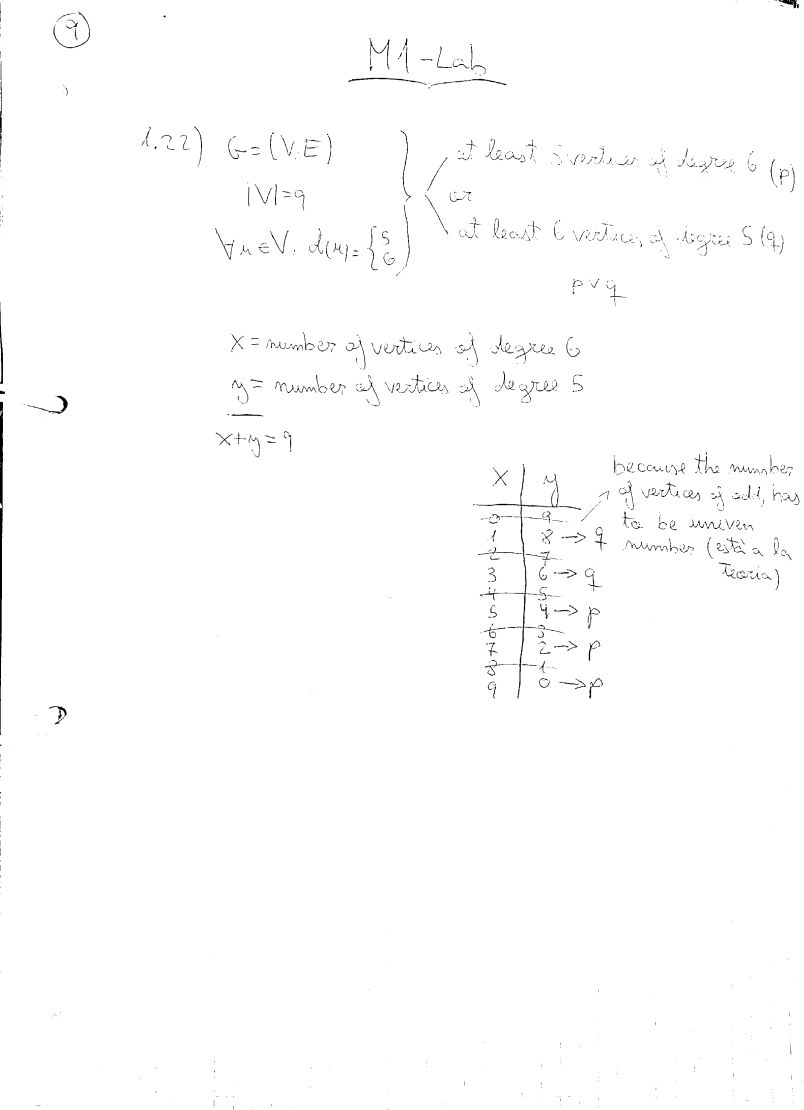 9
M1-Lab
1.22) G=(V,E)
|V|=9
∀u∈V, d(u)= { 5 6
at least 5 vertices of degree 6 (p)
or
at least 6 vertices of degree 5 (q)
p∨q
X = number of vertices of degree 6
y = number of vertices of degree 5
x+y=9
X | y
0 | 9
1 | 8 → q
2 | 7
3 | 6 → q
4 | 5
5 | 4 → p
6 | 3
7 | 2 → p
8 | 1
9 | 0 → p
because the number
of vertices of odd, has
to be un even
number (està a la
teoria)